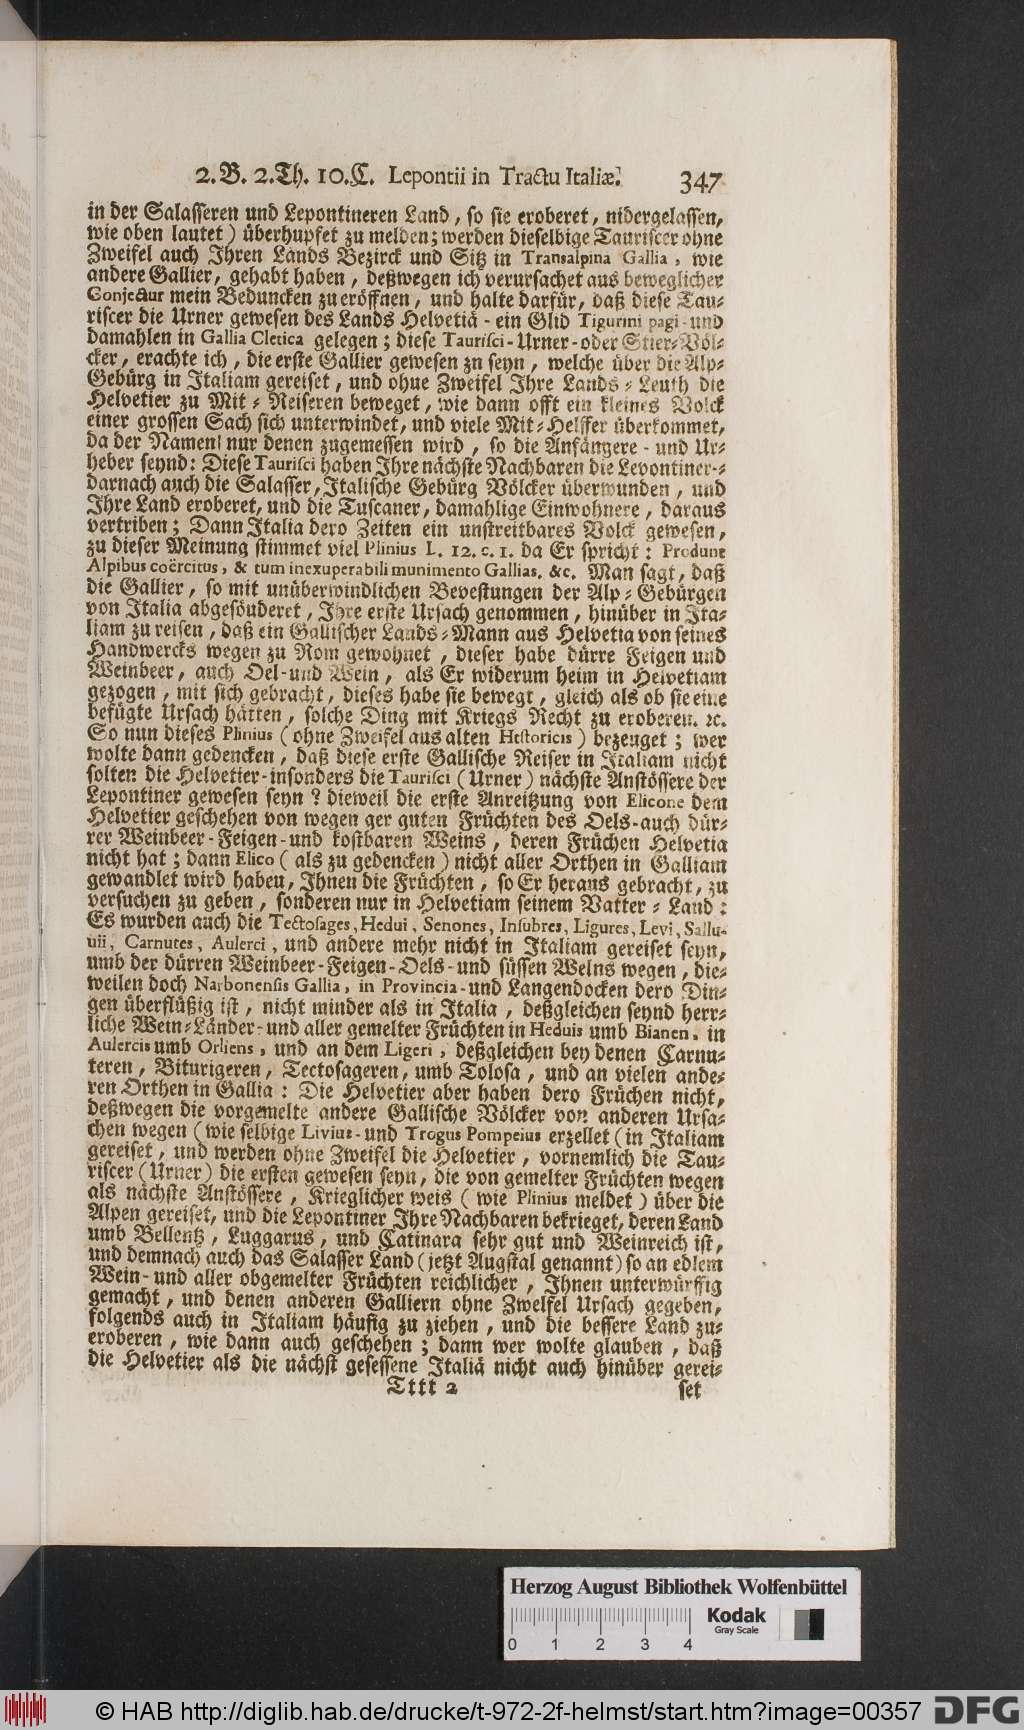 2. B. 2. Th. 10. C. Lepontii in Tractu Italiæ. 347
in der Salasseren und Lepontineren Land, so sie eroberet, nidergelassen,
wie oben lautet) überhupfet zu melden; werden dieselbige Taurisceer ohne
Zweifel auch Ihren Lands Bezirck und Sitz in Transalpina Gallia, wie
andere Gallier, gehabt haben, deßwegen ich verursachet aus beweglicher
Conjectur mein Beduncken zu eröffnen, und halte darfür, daß diese Tau-
riscer die Urner gewesen des Lands Helvetiä - ein Glid Tigurini pagi - und
damahlen in Gallia Cletica gelegen; diese Taurisci-Urner-oder Stier-Völ-
cker, erachte ich, die erste Gallier gewesen zn seyn, welche über die Alp-
Gebürg in Italiam gereiset, und ohne Zweifel Ihre Lands-Leuth die
Helvetier zu Mit-Reiseren beweget, wie dann offt ein kleines Volck
einer grossen Sach sich unterwindet, und viele Mit-Helffer überkommet,
da der Namen nur denen zugemessen wird, so die Anfängere - und Ur-
heber seynd: Diese Taurisci haben Ihre nächste Nachbaren die Levontiner-
darnach auch die Salasser, Italische Gebürg Völcker überwunden, und
Ihre Land eroberet, und die Tuscaner, damahlige Einwohnere, daraus
vertriben; Dann Italia dero Zeiten ein unstreitbares Volck gewesen,
zu dieser Meinung stimmet viel Plinius L. 12. c. 1. da Er spricht: Produnt
Alpibus coërcitus, & tum inexuperabili munimento Gallias. &c. Man sagt, daß
die Gallier, so mit unüberwindlichen Bevestungen der Alp-Gebürgen
von Italia abgesönderet, Ihre erste Ursach genommen, hinüber in Ita-
liam zu reisen, daß ein Gallischer Lands-Mann aus Helvetia von seines
Handwercks wegen zu Rom gewohnet, dieser habe dürre Feigen und
Weinbeer, auch Oel-und Wein, als Er widerum heim in Helvetiam
gezogen, mit sich gebracht, dieses habe sie bewegt, gleich als ob sie eine
befügte Ursach hätten, solche Ding mit Kriegs Recht zu eroberen. ꝛc.
So nun dieses Plinius (ohne Zweifel aus alten Historicis) bezeuget; wer
wolte dann gedencken, daß diese erste Gallische Reiser in Italiam nicht
solten die Helvetier-insonders die Taurisci (Urner) nächste Anstössere der
Lepontiner gewesen seyn? dieweil die erste Anreitzung von Elicone dem
Helvetier geschehen von wegen ger guten Früchten des Oels-auch dür-
rer Weinbeer-Feigen-und kostbaren Weins, deren Früchen Helvetia
nicht hat; dann Elico (als zu gedencken) nicht aller Orthen in Galliam
gewandlet wird haben, Ihnen die Früchten, so Er heraus gebracht, zu
versuchen zu geben, sonderen nur in Helvetiam seinem Vatter-Land:
Es wurden auch die Tectosages, Hedui, Senones, Insubres, Ligures, Levi, Sallu-
vii, Carnutes, Aulerci, und andere mehr nicht in Italiam gereiset seyn,
umb der dürren Weinbeer-Feigen-Oels-und süssen Welns wegen, die-
weilen doch Narbonensis Gallia, in Provincia-und Langendocken dero Din-
gen überflüßig ist, nicht minder als in Italia, deßgleichen seynd herr-
liche Wein-Länder-und aller gemelter Früchten in Heduis umb Bianen, in
Aulercis umb Orliens, und an dem Ligeri, deßgleichen bey denen Carnu-
teren, Biturigeren, Tectosageren, umb Tolosa, und an vielen ande-
ren Orthen in Gallia: Die Helvetier aber haben dero Früchen nicht,
deßwegen die vorgemelte andere Gallische Völcker von anderen Ursa-
chen wegen (wie selbige Livius-und Trogus Pompeius erzellet (in Italiam
gereiset, und werden ohne Zweifel die Helvetier, vornemlich die Tau-
riscer (Urner) die ersten gewesen seyn, die von gemelter Früchten wegen
als nächste Anstössere, Krieglicher weis (wie Plinius meldet) über die
Alpen gereiset, und die Lepontiner Ihre Nachbaren bekrieget, deren Land
umb Bellentz, Luggarus, und Catinara sehr gut und Weinreich ist,
und demnach auch das Salasser Land (jetzt Augstal genannt) so an edlem
Wein-und aller obgemelter Früchten reichlicher, Ihnen unterwürffig
gemacht, und denen anderen Galliern ohne Zweifel Ursach gegeben,
folgends auch in Italiam häufig zu ziehen, und die bessere Land zu-
eroberen, wie dann auch geschehen; dann wer wolte glauben, daß
die Helvetier als die nächst gesessene Italiä nicht auch hinüber gerei-
Tttt 2 set
Herzog August Bibliothek Wolfenbüttel
Kodak
Gray Scale
0 1 2 3 4
© HAB http://diglib.hab.de/drucke/t-972-2f-helmst/start.htm?image=00357 DFG